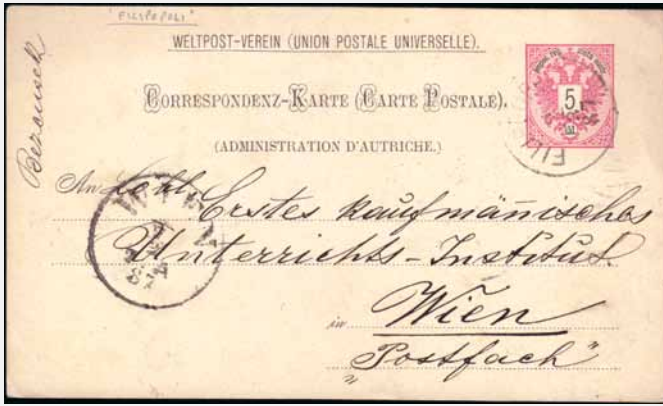 "FILIPOPOLI"
Bezousek
WELTPOST-VEREIN (UNION POSTALE UNIVERSELLE).
CORRESPONDENZ-KARTE (CARTE POSTALE).
(ADMINISTRATION D'AUTRICHE.)
5
FILI
An Löbl. Erstes kaufmänisches
Unterrichts-Institut
in Wien
"Postfach"